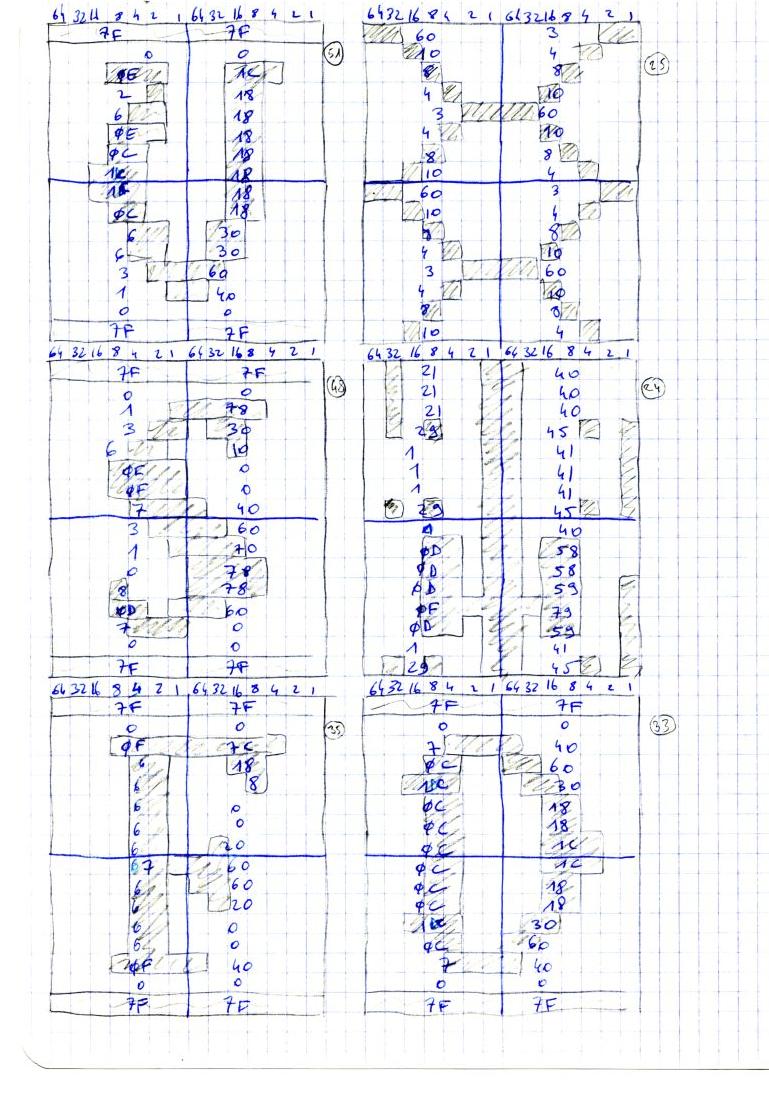 64 32 16 8 4 2 1 64 32 16 8 4 2 1
7F 7F
0 0
51
ØE 1C
2 18
6 18
ØE 18
ØC 18
1C 18
1C 18
ØC 18
6 30
6 30
3 60
1 40
0 0
7F 7F
64 32 16 8 4 2 1 64 32 16 8 4 2 1
60 3
10 4
25
8 8
4 10
3 60
4 10
8 8
10 4
60 3
10 4
8 8
4 10
3 60
4 10
8 8
10 4
64 32 16 8 4 2 1 64 32 16 8 4 2 1
7F 7F
48
0 0
1 78
3 30
6 10
ØE 0
ØF 0
7 40
3 60
1 70
0 78
8 78
ØD 60
7 0
0 0
7F 7F
64 32 16 8 4 2 1 64 32 16 8 4 2 1
21 40
21 40
24
21 40
29 45
1 41
1 41
1 41
29 45
1 40
ØD 58
ØD 58
ØD 59
ØF 79
ØD 59
1 41
29 45
64 32 16 8 4 2 1 64 32 16 8 4 2 1
7F 7F
0 0
35
ØF 7C
6 18
6 8
6 0
6 0
6 20
67 60
6 60
6 20
6 0
6 0
ØF 40
0 0
7F 7F
64 32 16 8 4 2 1 64 32 16 8 4 2 1
7F 7F
0 0
33
7 40
ØC 60
1C 30
ØC 18
ØC 18
ØC 1C
ØC 1C
ØC 18
ØC 18
1C 30
ØC 60
7 40
0 0
7F 7F